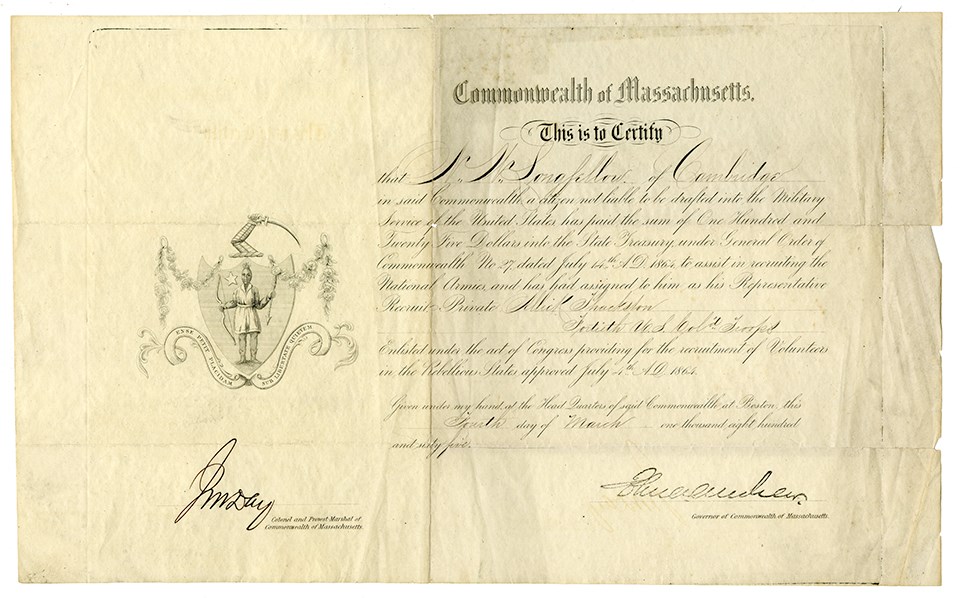 Commonwealth of Massachusetts.
This is to Certify
that H. W. Longfellow of Cambridge
in said Commonwealth, a citizen not liable to be drafted into the Military
Service of the United States has paid the sum of One Hundred and
Twenty Five Dollars into the State Treasury, under General Order of
Commonwealth No 27, dated July 14th A.D. 1864, to assist in recruiting the
National Armies, and has had assigned to him as his Representative
Recruit Private
Fortieth U.S. Cold. Troops
Enlisted under the act of Congress providing for the recruitment of Volunteers
in the Rebellious States approved July 4th A.D. 1864.
Given under my hand, at the Head Quarters of said Commonwealth at Boston, this
Fourth day of March one thousand eight hundred
and sixty five.
ENSE PETIT PLACIDAM SUB LIBERTATE QUIETEM
Colonel and Provost-Marshal of
Commonwealth of Massachusetts.
Governor of Commonwealth of Massachusetts.